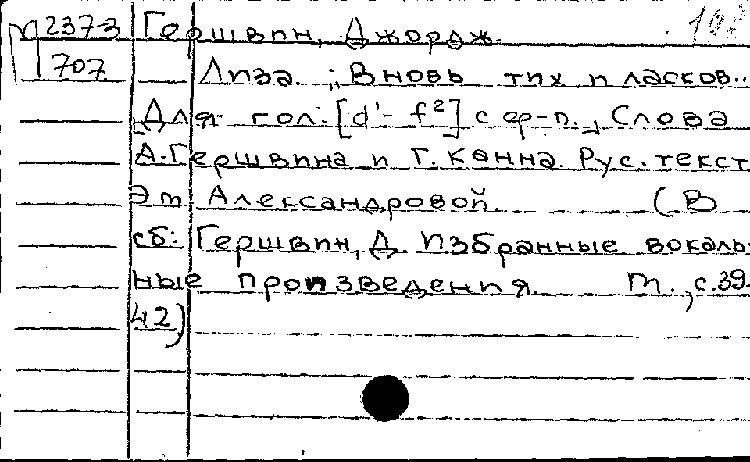 М2373 Гершвин, Джордж.
707 Лиза. ; Вновь тих и ласков..
Для гол. [d¹- f²] с ф-п., Слова
А. Гершвина и Г. Канна. Рус. текст
Эм. Александровой. (В
сб: Гершвин, Д. Избранные вокаль-
ные произведения. М., с.39-
42)